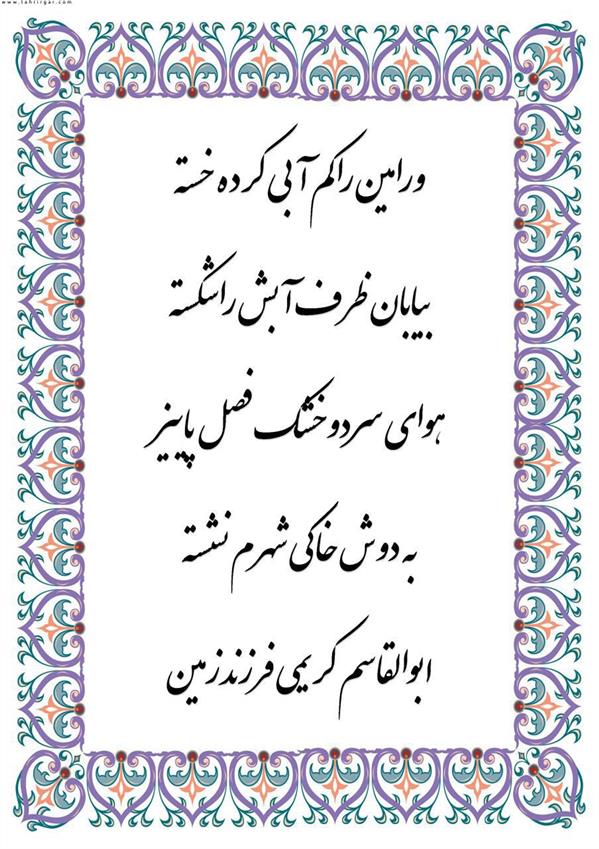 www.tahrirgar.com
ورامین را کم آبی کرده خسته
بیابان ظرف آبش را شکسته
هوای سرد و خشک فصل پاییز
به دوش خاکی شهرم نشسته
ابوالقاسم کریمی فرزندزمین